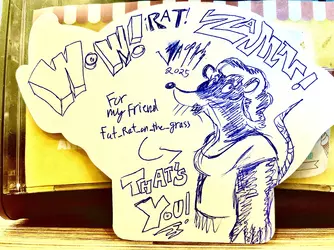 WOW! RAT! ZAMN!
2025
For
my Friend
Fat_Rat_on_the_grass
THAT'S
YOU!